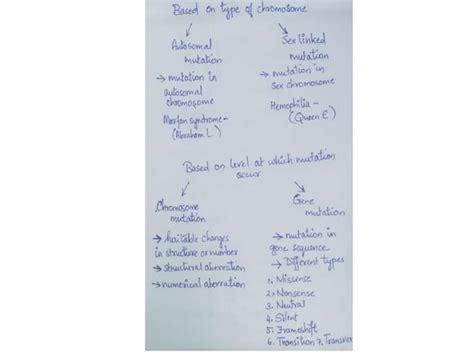 Based on type of chromosome
Autosomal
mutation
→ mutation in
autosomal
chromosome
Marfan syndrome-
(Abraham L.)
Sex linked
mutation
→ mutation in
Sex chromosome
Hemophilia -
(Queen E)
Based on level at which mutation
occur
Chromosome
mutation
→ Heritable changes
in structure or number
→ structural aberration
→ numerical aberration
Gene
mutation
→ mutation in
gene sequence
→ Different types
1. Missense
2. Nonsense
3. Neutral
4. Silent
5. Frameshift
6. Transition 7. Transver